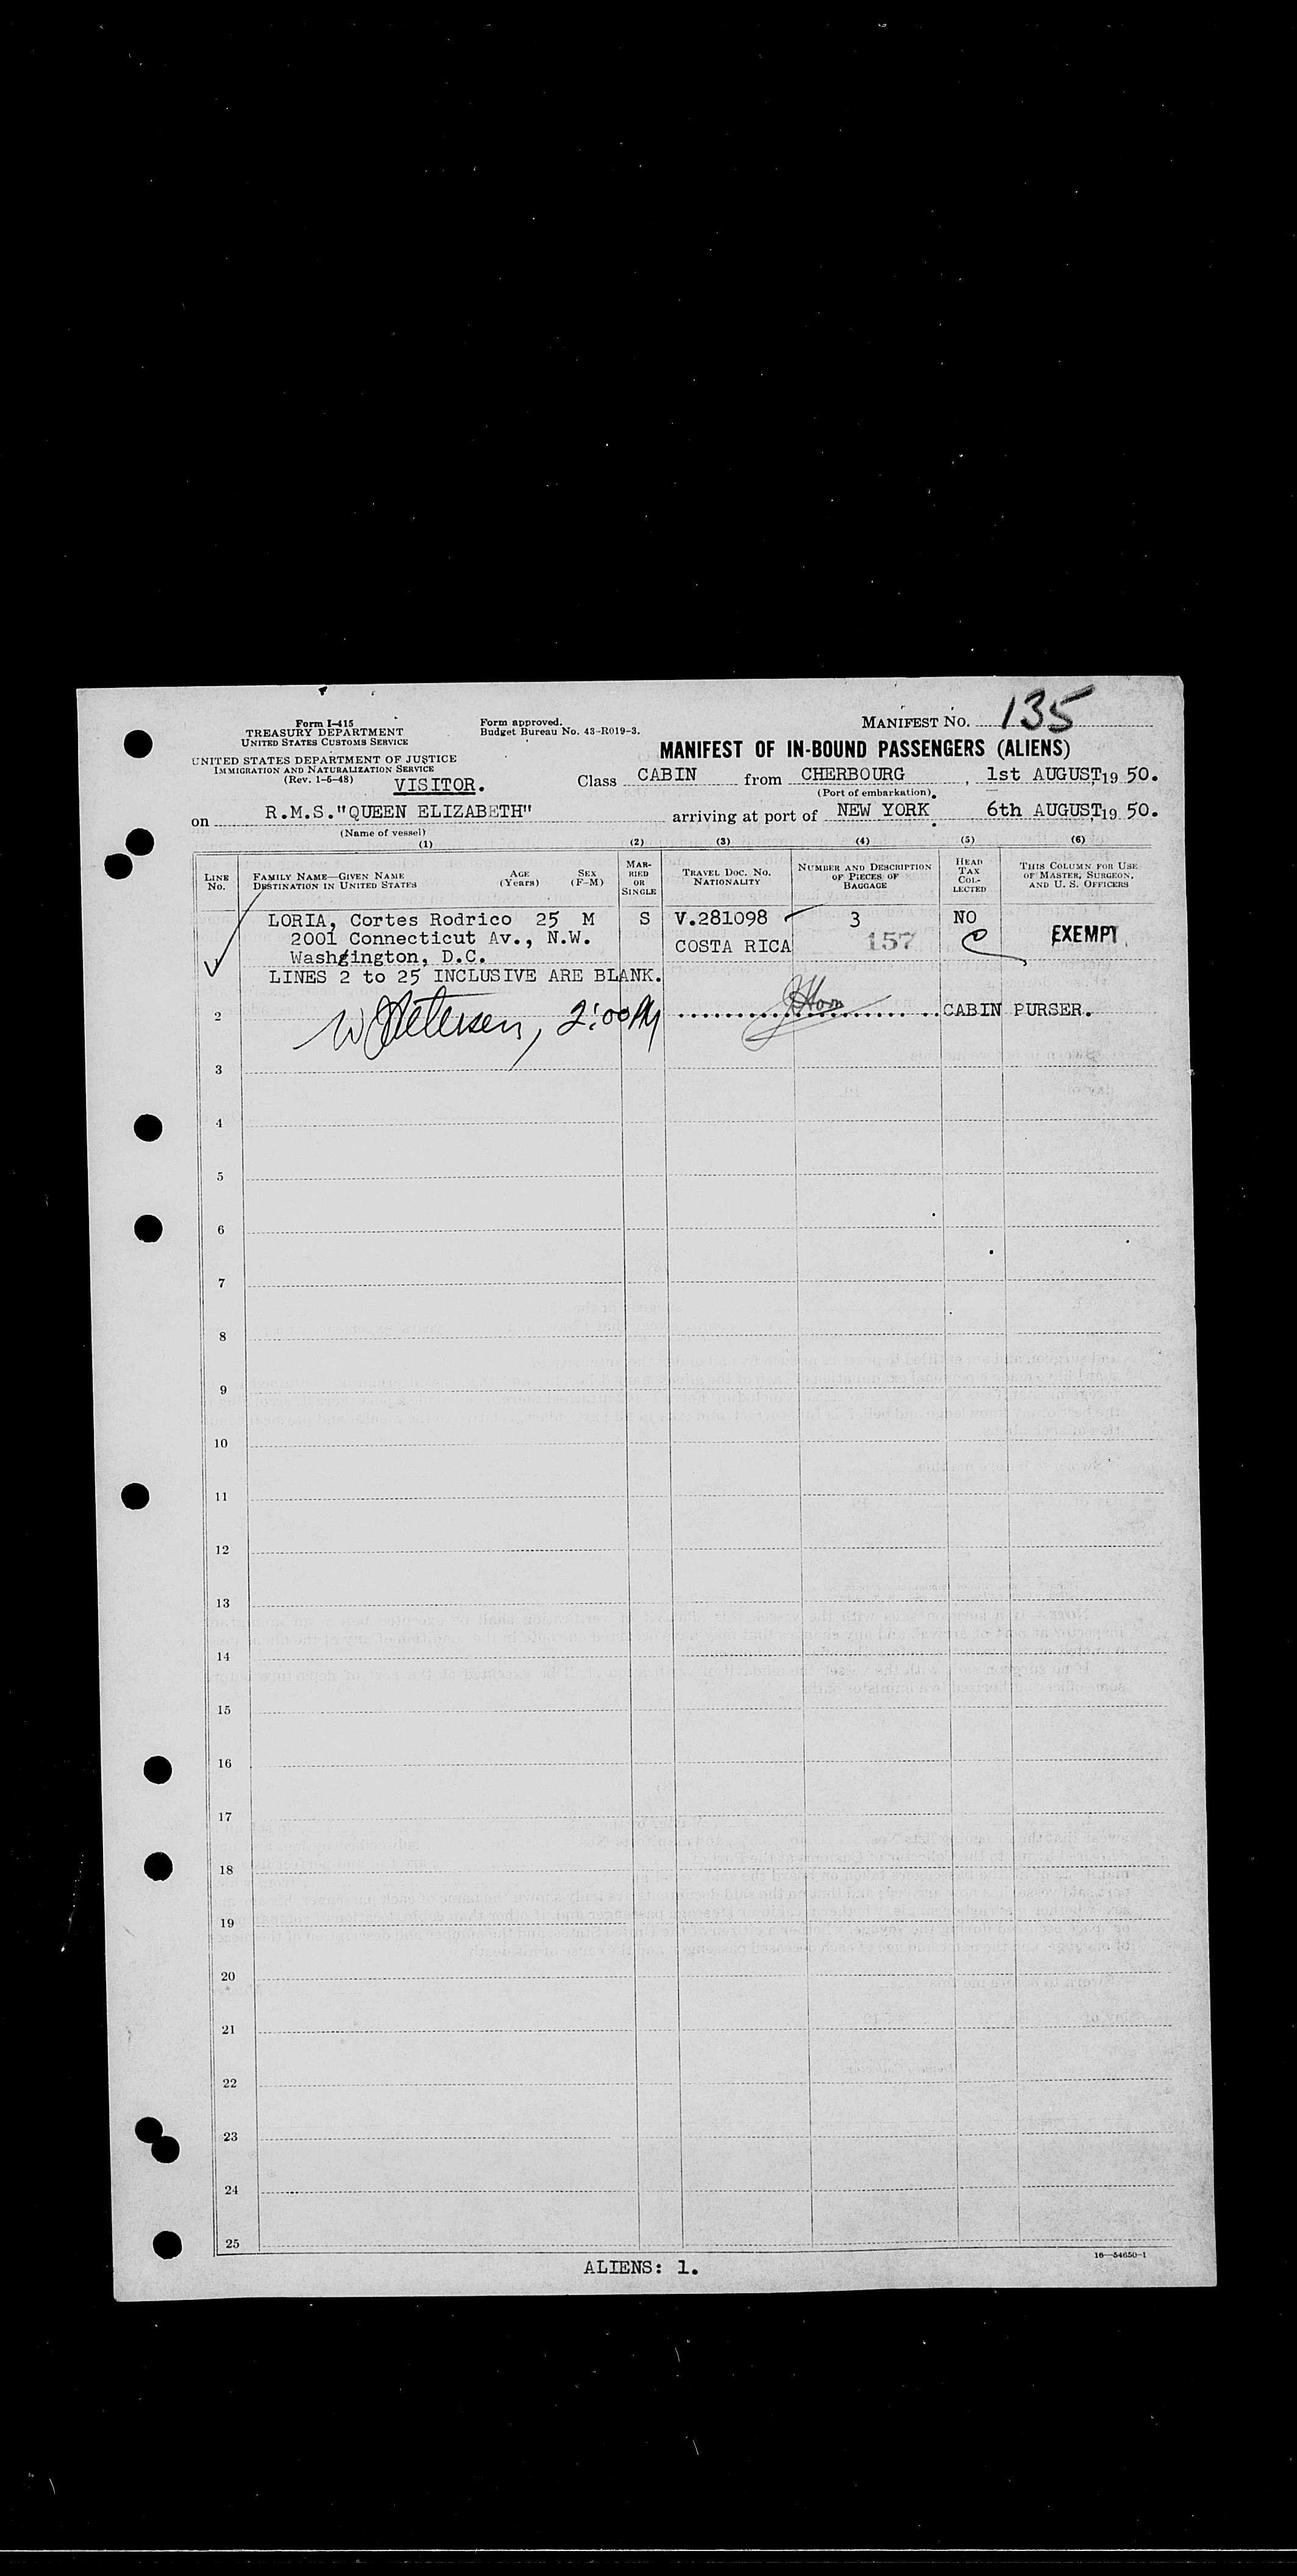 Form I-415
TREASURY DEPARTMENT
UNITED STATES CUSTOMS SERVICE
UNITED STATES DEPARTMENT OF JUSTICE
IMMIGRATION AND NATURALIZATION SERVICE
(Rev. 1-6-48)
VISITOR.
Form approved.
Budget Bureau No. 43-R019-3.
MANIFEST No. 135
MANIFEST OF IN-BOUND PASSENGERS (ALIENS)
Class CABIN from CHERBOURG, 1st AUGUST, 19 50.
(Port of embarkation)
on R.M.S."QUEEN ELIZABETH" arriving at port of NEW YORK. 6th AUGUST, 19 50.
(Name of vessel)
(1) (2) (3) (4) (5) (6)
LINE No. FAMILY NAME—GIVEN NAME DESTINATION IN UNITED STATES AGE (Years) SEX (F-M) MARRIED OR SINGLE TRAVEL DOC. NO. NATIONALITY NUMBER AND DESCRIPTION OF PIECES OF BAGGAGE HEAD TAX COLLECTED THIS COLUMN FOR USE OF MASTER, SURGEON, AND U. S. OFFICERS
LORIA, Cortes Rodrico 25 M S V.281098 3 NO
2001 Connecticut Av., N.W. COSTA RICA 157 EXEMPT
Washgington, D.C.
LINES 2 to 25 INCLUSIVE ARE BLANK.
2 W Petersen, 2:00 PM CABIN PURSER.
3
4
5
6
7
8
9
10
11
12
13
14
15
16
17
18
19
20
21
22
23
24
25
16—54650-1
ALIENS: 1.